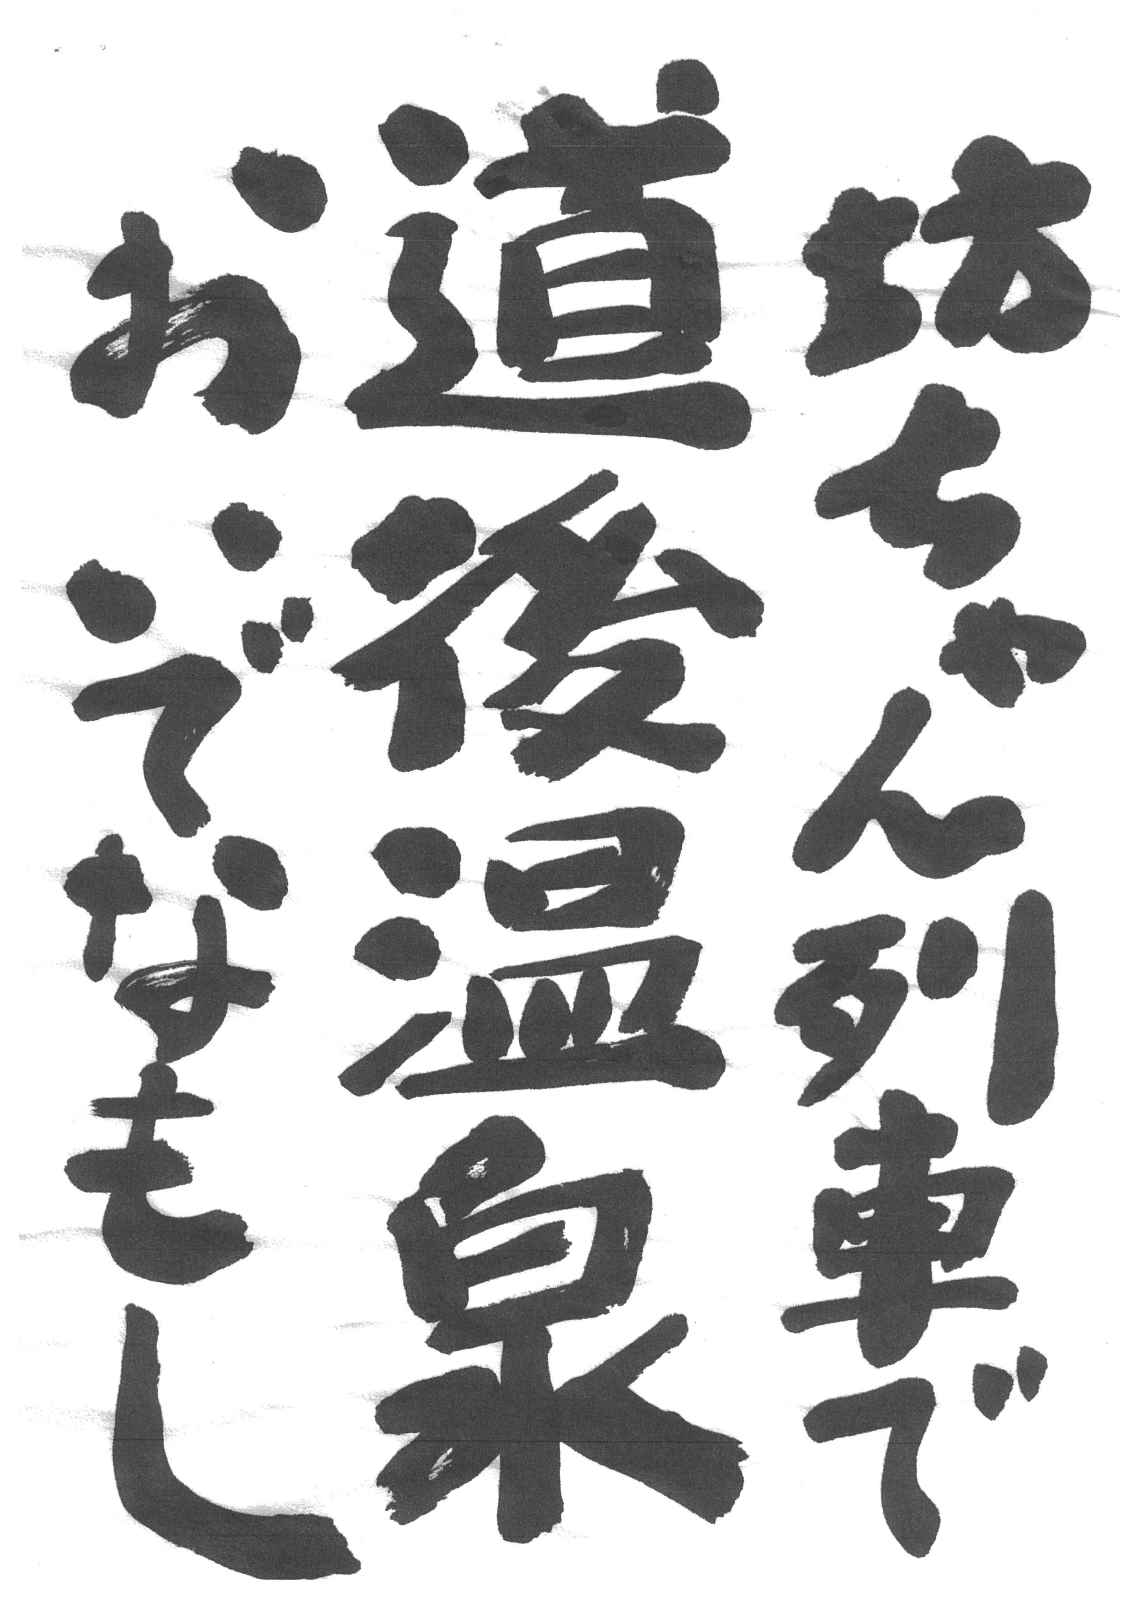 坊ちゃん列車で
道後温泉
おいでなもし